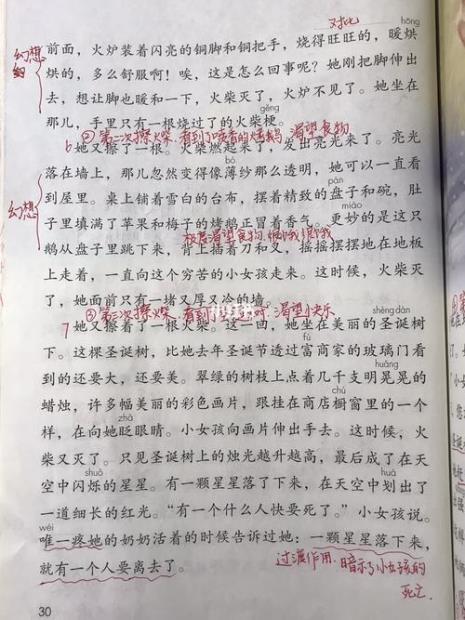 对比
hōng
前面，火炉装着闪亮的铜脚和铜把手，烧得旺旺的，暖烘
幻想
烘的，多么舒服啊！唉，这是怎么回事呢？她刚把脚伸出
去，想让脚也暖和一下，火柴灭了，火炉不见了。她坐在
那儿，手里只有一根烧过了的火柴梗。
gěng
②第二次擦火柴，看到了喷香的烤鹅 渴望食物
6 她又擦了一根。火柴燃起来了，发出亮光来了。亮光
bó
落在墙上，那儿忽然变得像薄纱那么透明，她可以一直看
到屋里。桌上铺着雪白的台布，摆着精致的盘子和碗，肚
幻想
子里填满了苹果和梅子的烤鹅正冒着香气。更妙的是这只
miào
极度渴望食物
鹅从盘子里跳下来，背上插着刀和叉，摇摇摆摆地在地板
上走着，一直向这个穷苦的小女孩走来。这时候，火柴灭
了，她面前只有一堵又厚又冷的墙。
③第三次擦火柴，看到 渴望快乐
shèng dàn
7 她又擦着了一根火柴。这一回，她坐在美丽的圣诞树
下。这棵圣诞树，比她去年圣诞节透过富商家的玻璃门看
fù
到的还要大，还要美。翠绿的树枝上点着几千支明晃晃的
huǎng
蜡烛，许多幅美丽的彩色画片，跟挂在商店橱窗里的一个
chú
样，在向她眨眼睛。小女孩向画片伸出手去。这时候，火
zhǎ
柴又灭了。只见圣诞树上的烛光越升越高，最后成了在天
shuò
空中闪烁的星星。有一颗星星落了下来，在天空中划出了
huá
一道细长的红光。“有一个什么人快要死了。”小女孩说。
wéi
唯一疼她的奶奶活着的时候告诉过她：一颗星星落下来，
就有一个人要离去了。
过渡作用，暗示了小女孩的
死亡
30